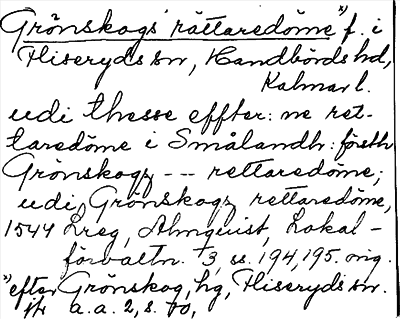 Grönskogs rättaredöme x) f. i
Fliseryds sn, Handbörds hd,
Kalmar l.
udi thesse effter: ne ret-
taredöme i Smålandh: försth
Grönskogz --- rettaredöme;
udi Grönskogz rettaredöme,
1544 Lreg, Almquist, Lokal-
förvaltn. 3, ss. 194, 195. orig.
x) efter Grönskog, hg, Fliseryds sn.
jfr a.a. 2, s.